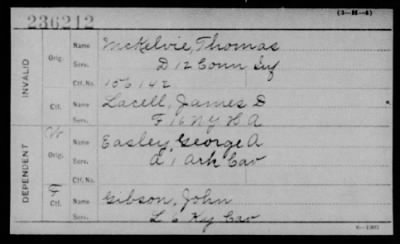 236212
(3-H-4)
INVALID
Orig.
Name McKelvie, Thomas
Serv. D 12 Conn Inf
Ctf. No. 106142
Ctf.
Name Lacell, James D
Serv. F 16 N Y H A
DEPENDENT
W
Orig.
Name Easley, George A
Serv. A 1 Ark Cav
Ctf. No.
Ctf.
Name Gibson, John
Serv. L 6 Ky Cav